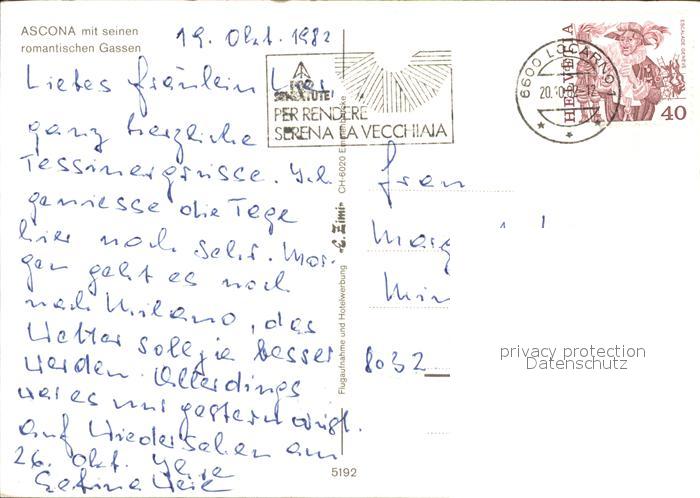 ASCONA mit seinen
romantischen Gassen
19. Okt. 1982
Liebes Fräulein
ganz herzliche
Tessinergrüsse. Ich
geniesse die Tage
hier noch sehr. Mor-
gen geht es noch
nach Milano, das
Wetter soll ja besser
werden. Allerdings
war es nur gestern
Auf Wiedersehen am
26. Okt. Ihre
PER RENDERE
SERENA LA VECCHIAIA
6600 LOCARNO
20.10.82-12
HELVETIA
ESCALADE GENÈVE
40
Frau
8032
Flugaufnahme und Hotelwerbung
CH-6020
5192
privacy protection
Datenschutz